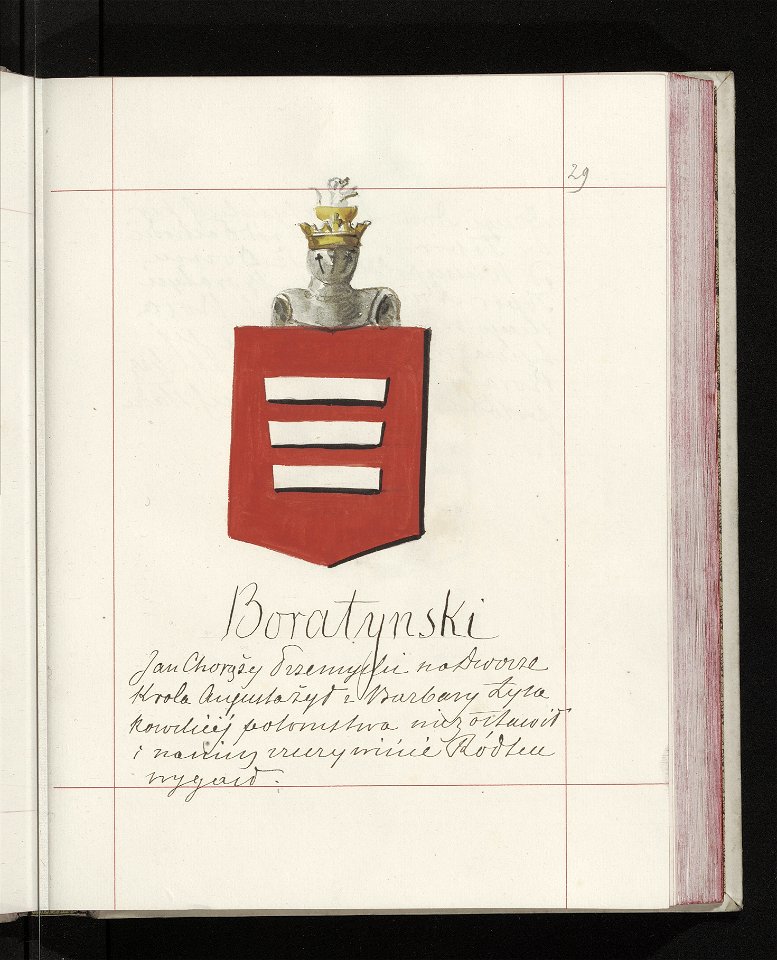 29
Boratynski
Jan Chorąży Przemyski na Dworze
Krola Augusta żył z Barbary Łysa
kowskiej potomstwa nie zostawił
i na nim
wygasł.